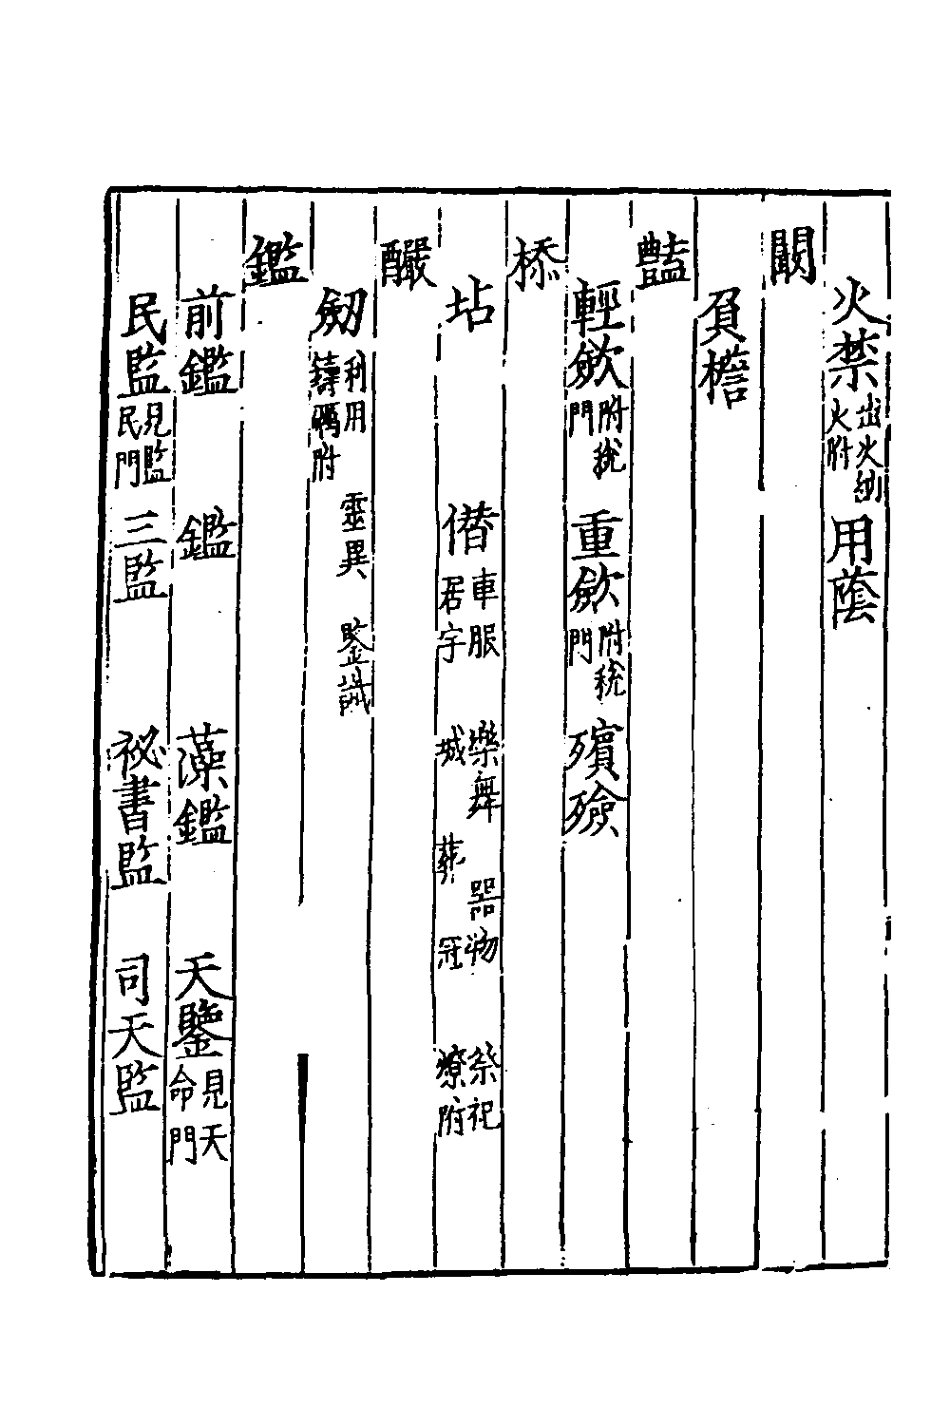 火禁出火納火附用蔭
闞
負檐
豔
輕斂附稅門重斂附稅門殯殮
㮇
坫僭車服居宇樂舞城葬器物冠祭祀燎附
釅
劒利用鑄礪附靈異鑒識
鑑
前鑑鑑藻鑑天鑒見天命門
民監見監民門三監祕書監司天監